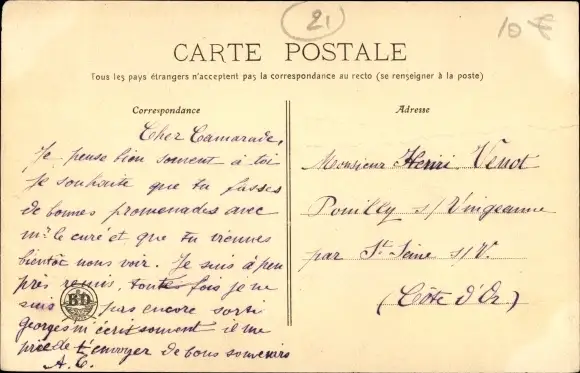 21
10 €
CARTE POSTALE
Tous les pays étrangers n'acceptent pas la correspondance au recto (se renseigner à la poste)
Correspondance
Cher Camarade,
Je pense bien souvent à toi
Je souhaite que tu fasses
de bonnes promenades avec
mr le curé et que tu viennes
bientôt nous voir. Je suis à peu
près remis, toutes fois je ne
suis pas encore sorti
BD
Georges m'écrit souvent il me
prie de t'envoyer de bons souvenirs
A. C.
Adresse
Monsieur Henri Venot
Pouilly s/Vingeanne
par St Seine s/V.
(Côte d'Or)